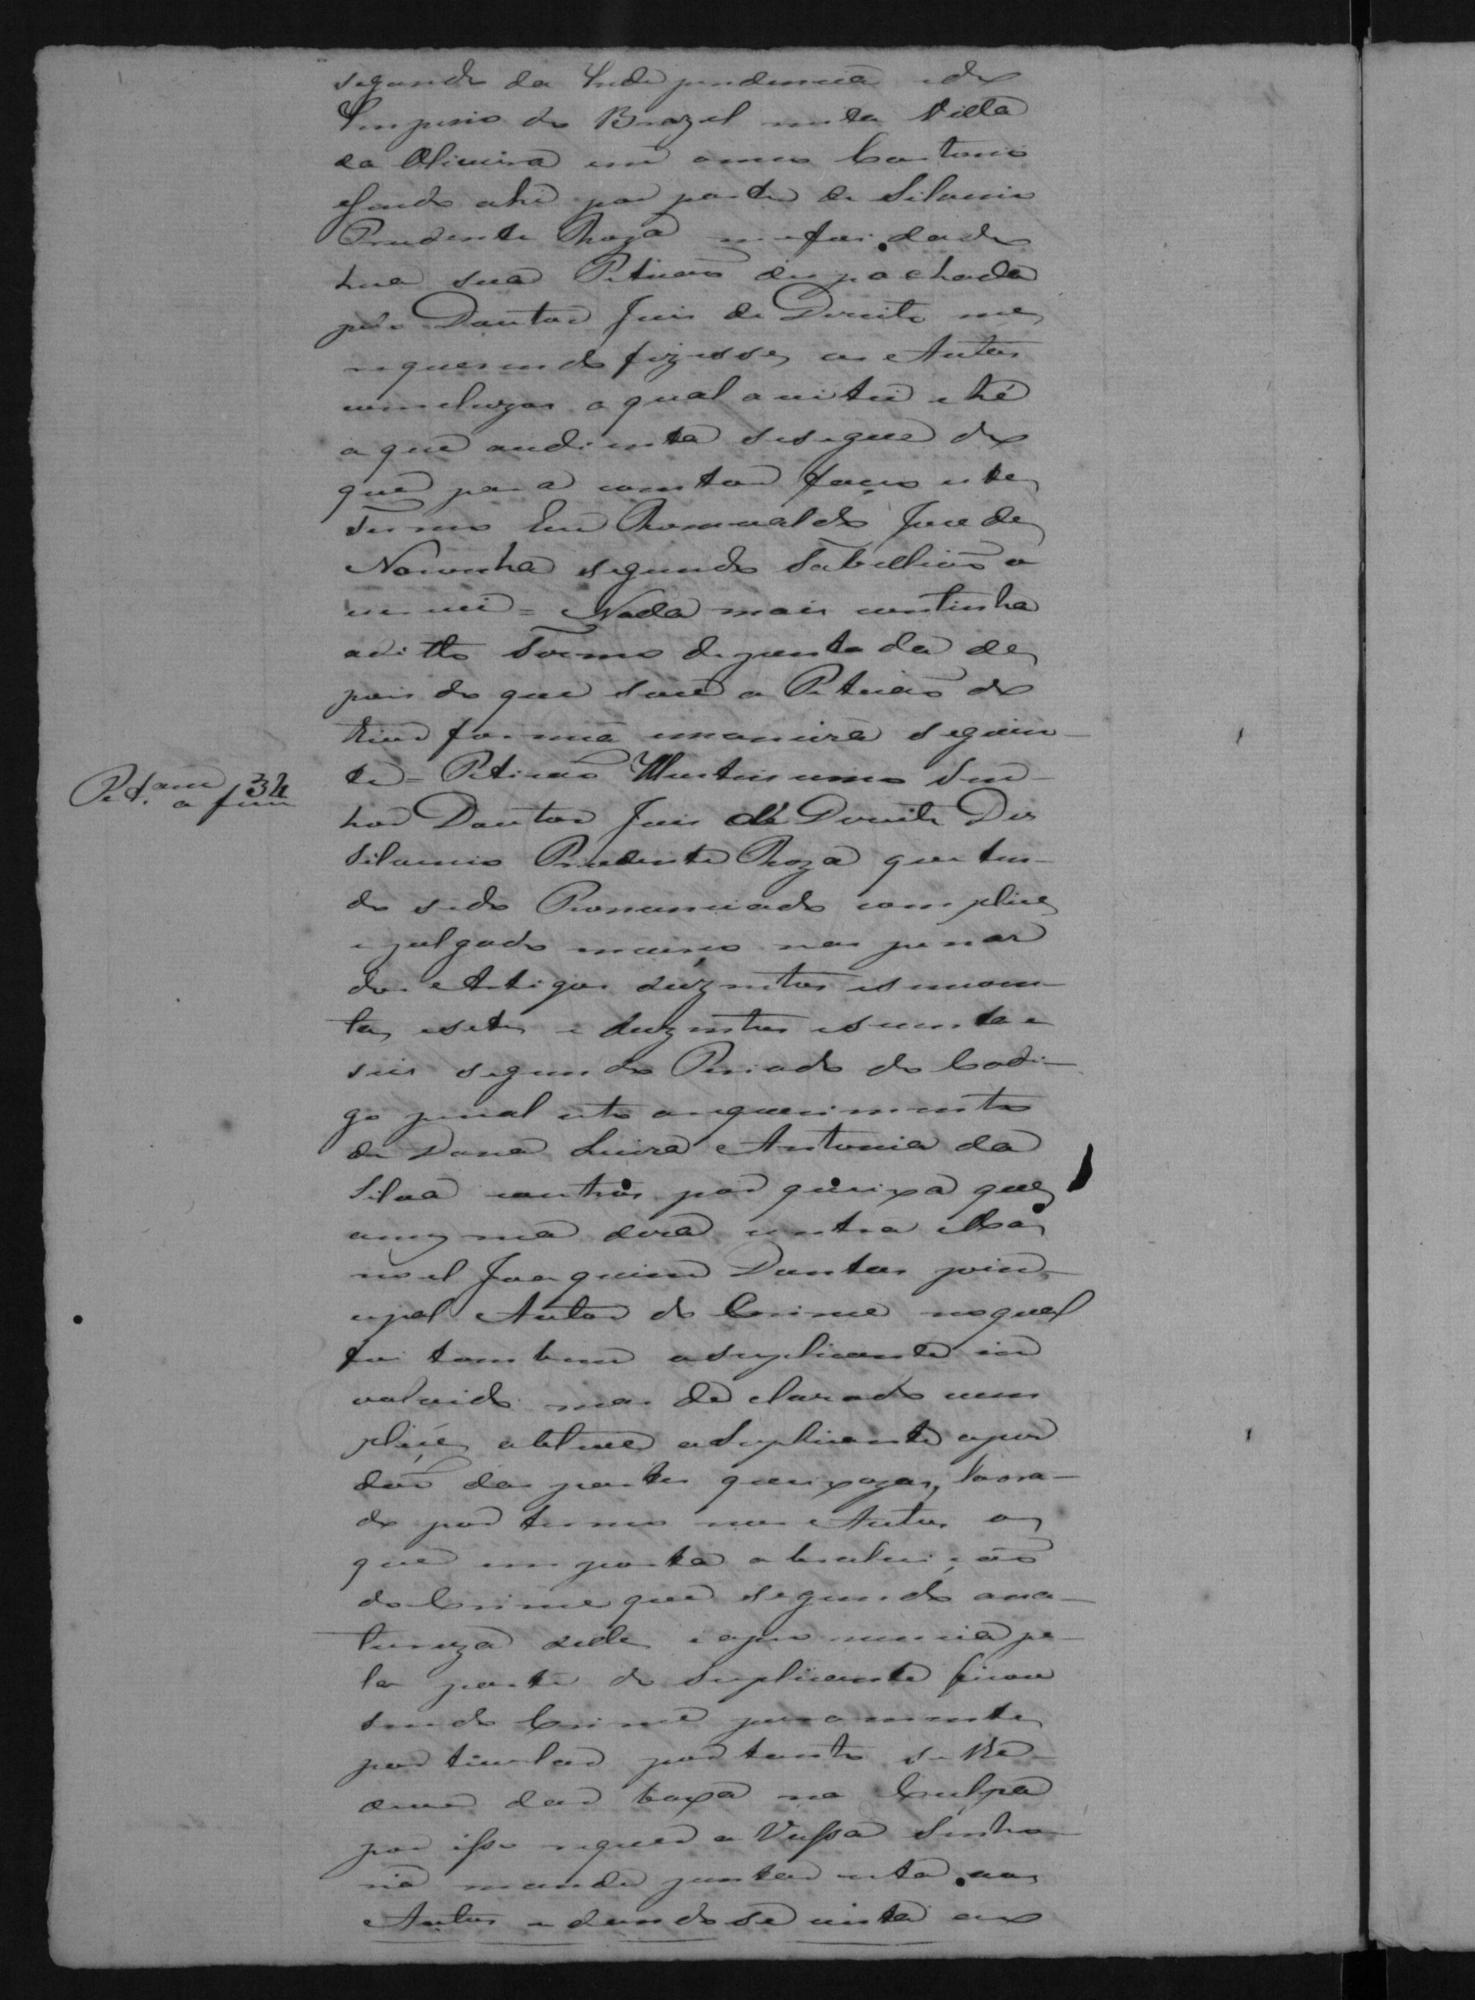 segundo da Independencia edo
Imperio do Brazel nesta Villa
da Oliveira em omeu Cartorio
e sendo ahi por parte de Silverio
Prudente Roza me foi dada
hua sua Petição despachada
pelo Doutor Juis de Dereito me
requerendo fizesse os Autos
concluzos a qual aceitei e hé
a que audiente sesegue do
que para constar faço este
Termo Eu Romualdo Joze de
Noronha segundo Tabellião o
escrevi = Nada mais continha
odito Termo dejuntada de
pois do que sevê a Petição do
theor forma emaneira seguin-
te = Petição Illustrissimo Sen-
hor Doutor Juis de Dereito Diz
Silverio Prudente Roza que ten-
do sido Pronunciado complice
ejulgado incurso nas penas
dos Artigos duzentos esincoen-
ta, esete, e duzentos esecenta e
seis segundo Periodo do Codi-
go penal isto arequerimento
de Dona Luiza Antonia da
Silva e outros por queixa que
amesma dera contra Ma-
noel Joaquim Dantas prin-
cipal Autor do Crime noqual
foi tambem osuplicante in
volvido mas declarado com
plice, obteve osuplicante oper
dão das partes queixozas, lavra-
do por termo nos Autos o
que importa abolição
do Crime que segundo ana-
tureza delle e apronuncia pe-
la parte do suplicante ficou
sendo Crime puramente
particular portanto se lhe
deve dar baxa na Culpa
por isso requer a Vossa Senho-
ria mande juntar esta aos
Autos e dandose vista ao
Pet.am a f 34